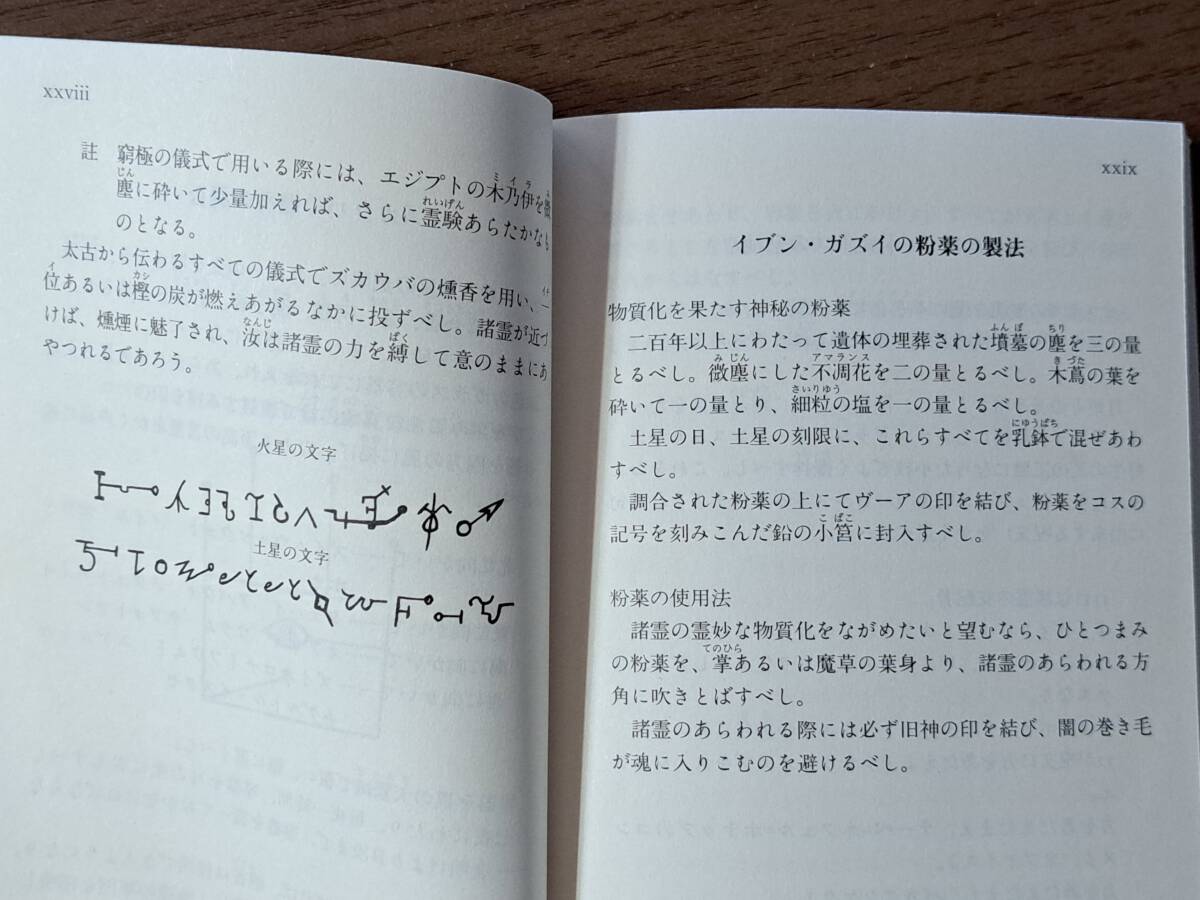 xxviii
註 窮極の儀式で用いる際には、エジプトの木乃伊を微
塵に砕いて少量加えれば、さらに霊験あらたかなも
のとなる。
太古から伝わるすべての儀式でズカウバの燻香を用い、一
位あるいは樫の炭が燃えあがるなかに投ずべし。諸霊が近づ
けば、燻煙に魅了され、汝は諸霊の力を縛して意のままにあ
やつれるであろう。
火星の文字
土星の文字
xxix
イブン・ガズイの粉薬の製法
物質化を果たす神秘の粉薬
二百年以上にわたって遺体の埋葬された墳墓の塵を三の量
とるべし。微塵にした不凋花を二の量とるべし。木蔦の葉を
砕いて一の量とり、細粒の塩を一の量とるべし。
土星の日、土星の刻限に、これらすべてを乳鉢で混ぜあわ
すべし。
調合された粉薬の上にてヴーアの印を結び、粉薬をコスの
記号を刻みこんだ鉛の小筥に封入すべし。
粉薬の使用法
諸霊の霊妙な物質化をながめたいと望むなら、ひとつまみ
の粉薬を、掌あるいは魔草の葉身より、諸霊のあらわれる方
角に吹きとばすべし。
諸霊のあらわれる際には必ず旧神の印を結び、闇の巻き毛
が魂に入りこむのを避けるべし。